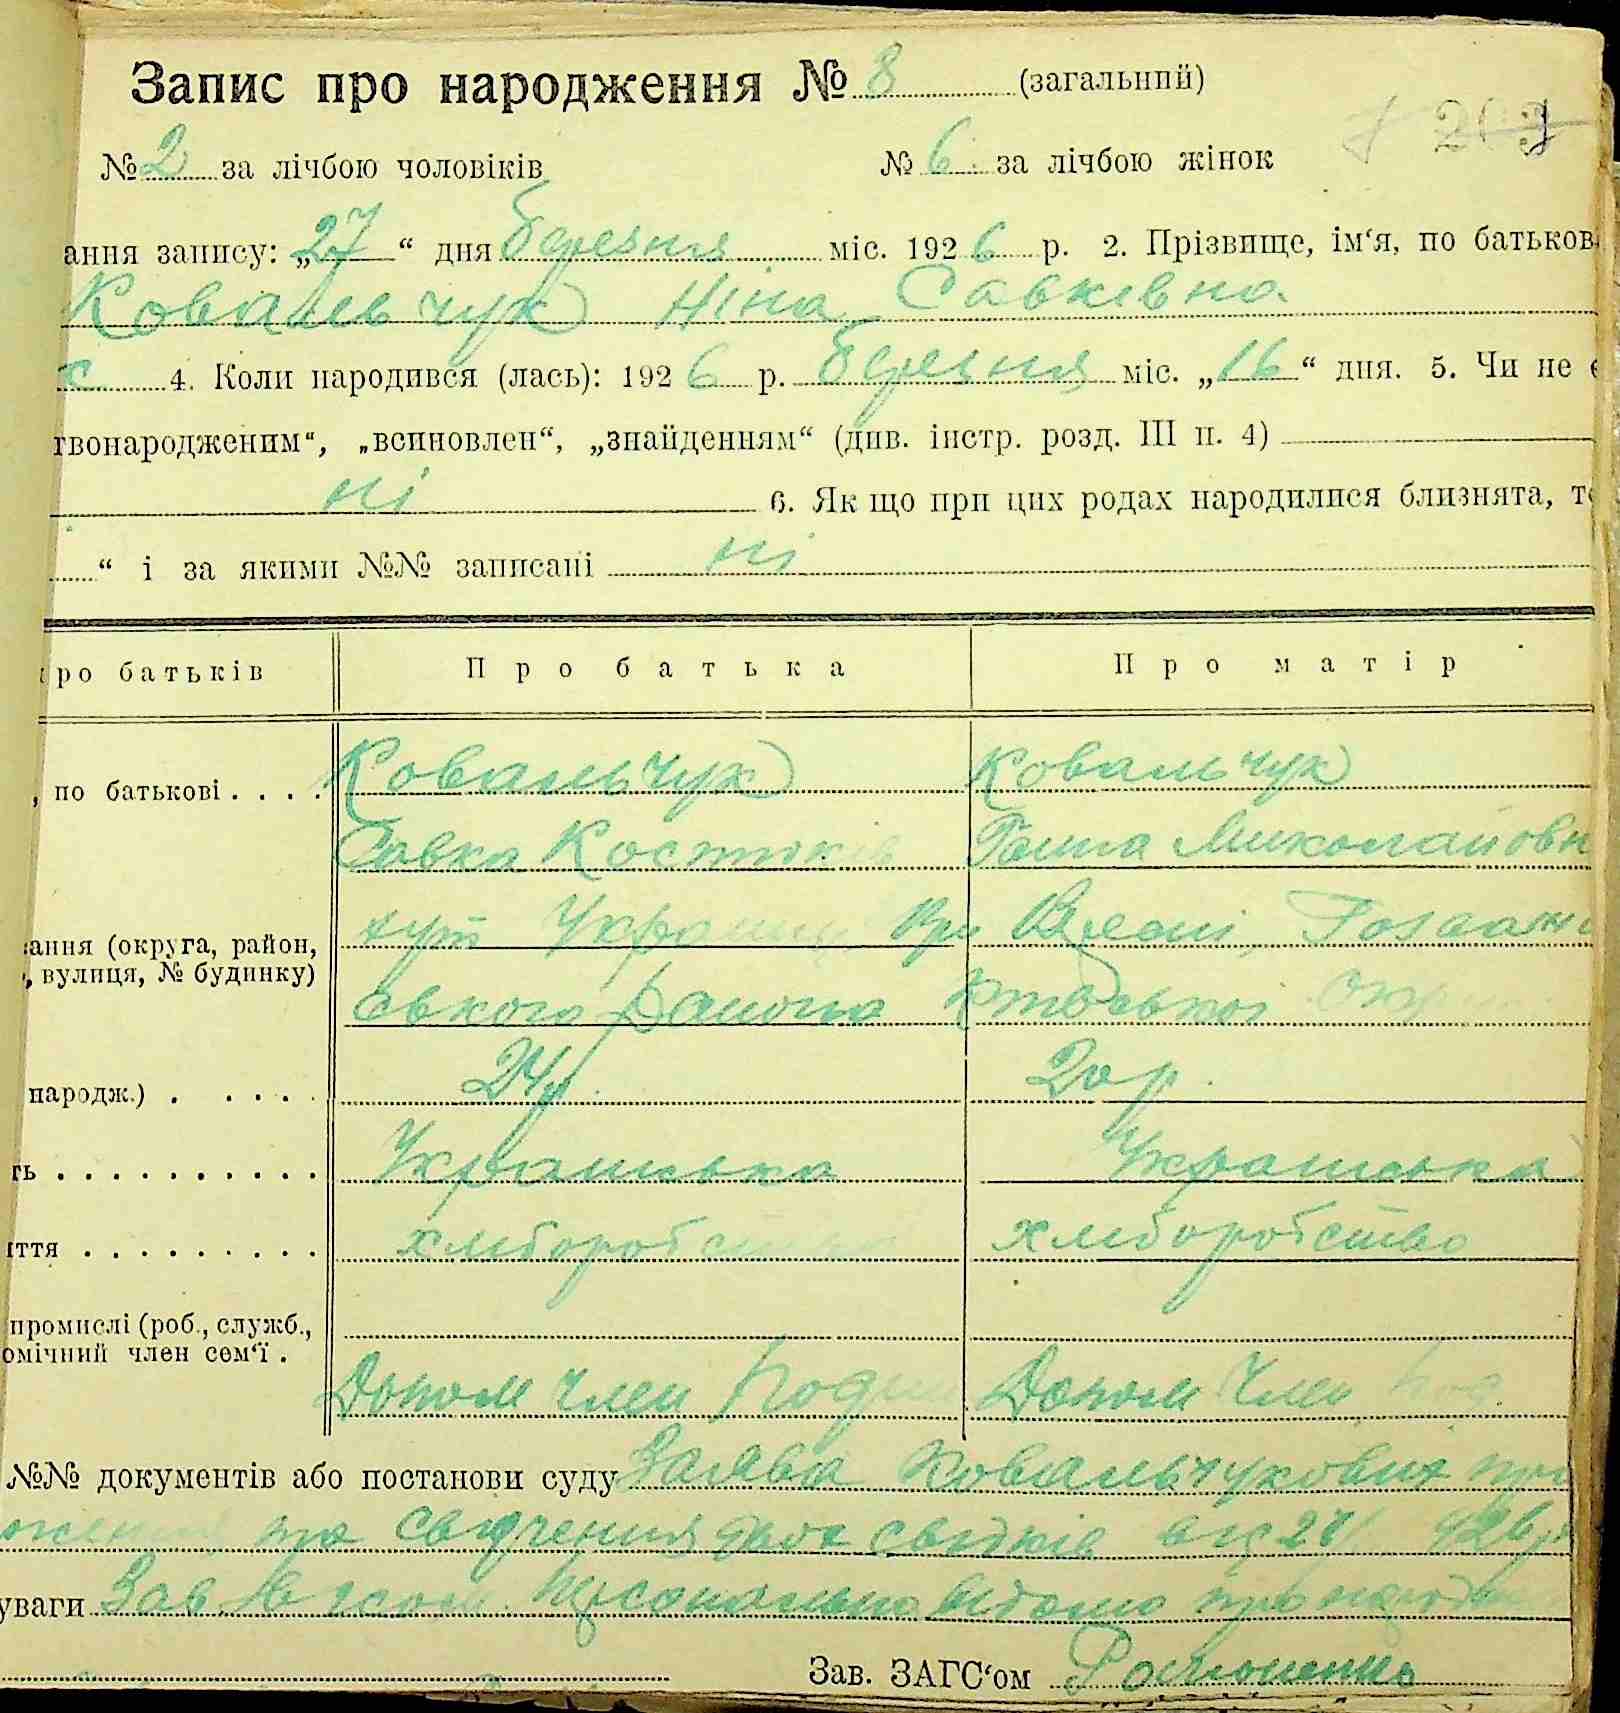 Запис про народження № 8 (загальний)
203
№ 2 за лічбою чоловіків № 6 за лічбою жінок
ання запису: „27“ дня березня міс. 1926 р. 2. Прізвище, ім‘я, по батьков
Ковальчук Ніна Савківна
ж 4. Коли народився (лась): 1926 р. березня міс. „16“ дня. 5. Чи не є
твонародженим“, „всиновлен“, „знайденням“ (див. інстр. розд. III п. 4)
ні 6. Як що при цих родах народилися близнята, то
“ і за якими №№ записані ні
про батьків Про батька Про матір
, по батькові Ковальчук Ковальчук
Савка Костюків Ганна Миколайовн
ання (округа, район, хут Україна
, вулиця, № будинку) ського району
народж.) 24 р. 20 р.
ть Українська Українська
ття хліборобство хліборобство
промислі (роб., служб.,
омічний член сем‘ї . Допом член Допом член
№№ документів або постанови суду Заява Ковальчукових про
та свідчення двох свідків від 27/ 926 р
уваги Зав. персонально відомо про народж
Зав. ЗАГС‘ом